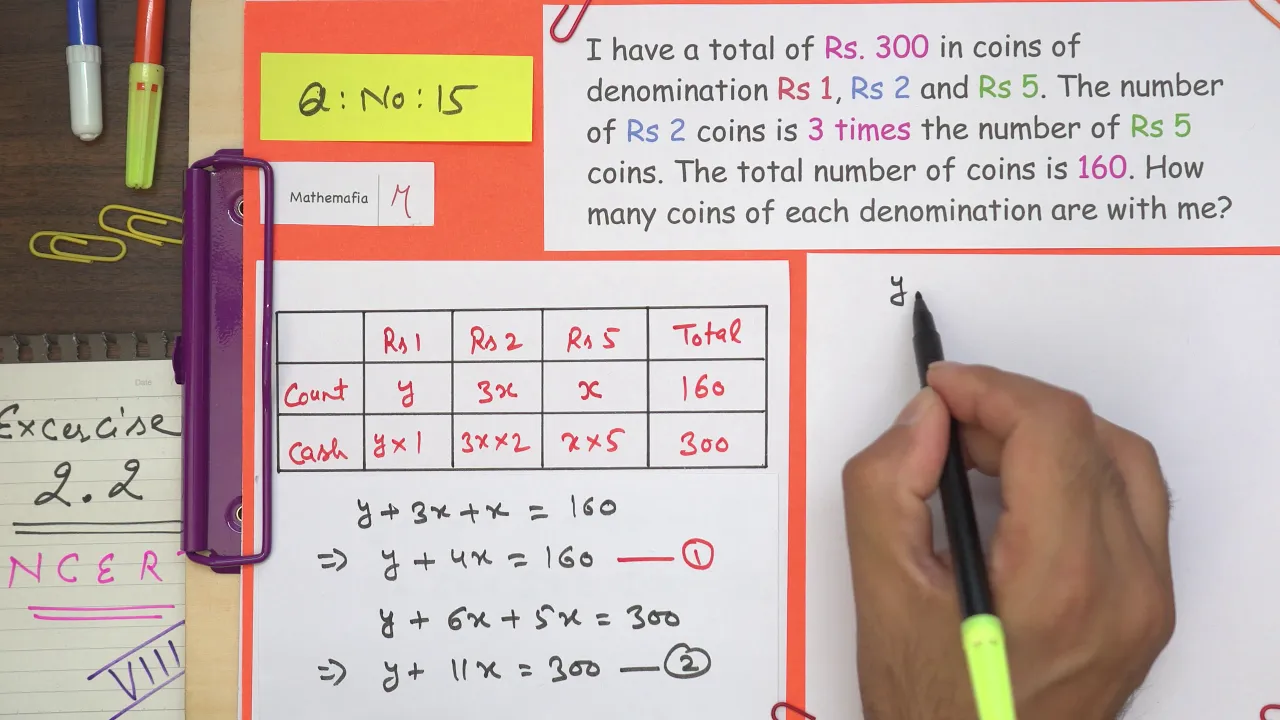 Q : No : 15
Mathemafia M
I have a total of Rs. 300 in coins of
denomination Rs 1, Rs 2 and Rs 5. The number
of Rs 2 coins is 3 times the number of Rs 5
coins. The total number of coins is 160. How
many coins of each denomination are with me?
Rs 1 Rs 2 Rs 5 Total
Count y 3x x 160
Cash y×1 3x×2 x×5 300
y + 3x + x = 160
⇒ y + 4x = 160 — ①
y + 6x + 5x = 300
⇒ y + 11x = 300 — ②
y
Date
Excercise
2.2
NCER
VIII